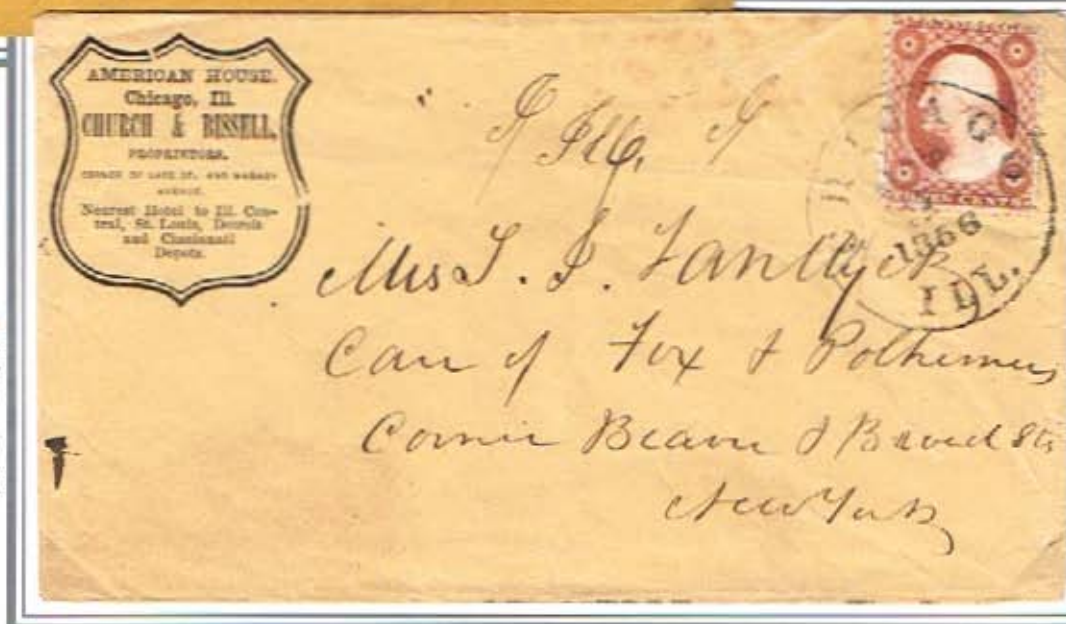 AMERICAN HOUSE.
Chicago, Ill.
CHURCH & BISSELL,
PROPRIETORS.
CORNER OF LAKE ST. AND WABASH
AVENUE.
Nearest Hotel to Ill. Cen-
tral, St. Louis, Detroit
and Cincinnati
Depots.
CHICAGO
ILL.
CENTS
Care of Fox & Polhemus
Corner Beaver & Broad Sts
New York